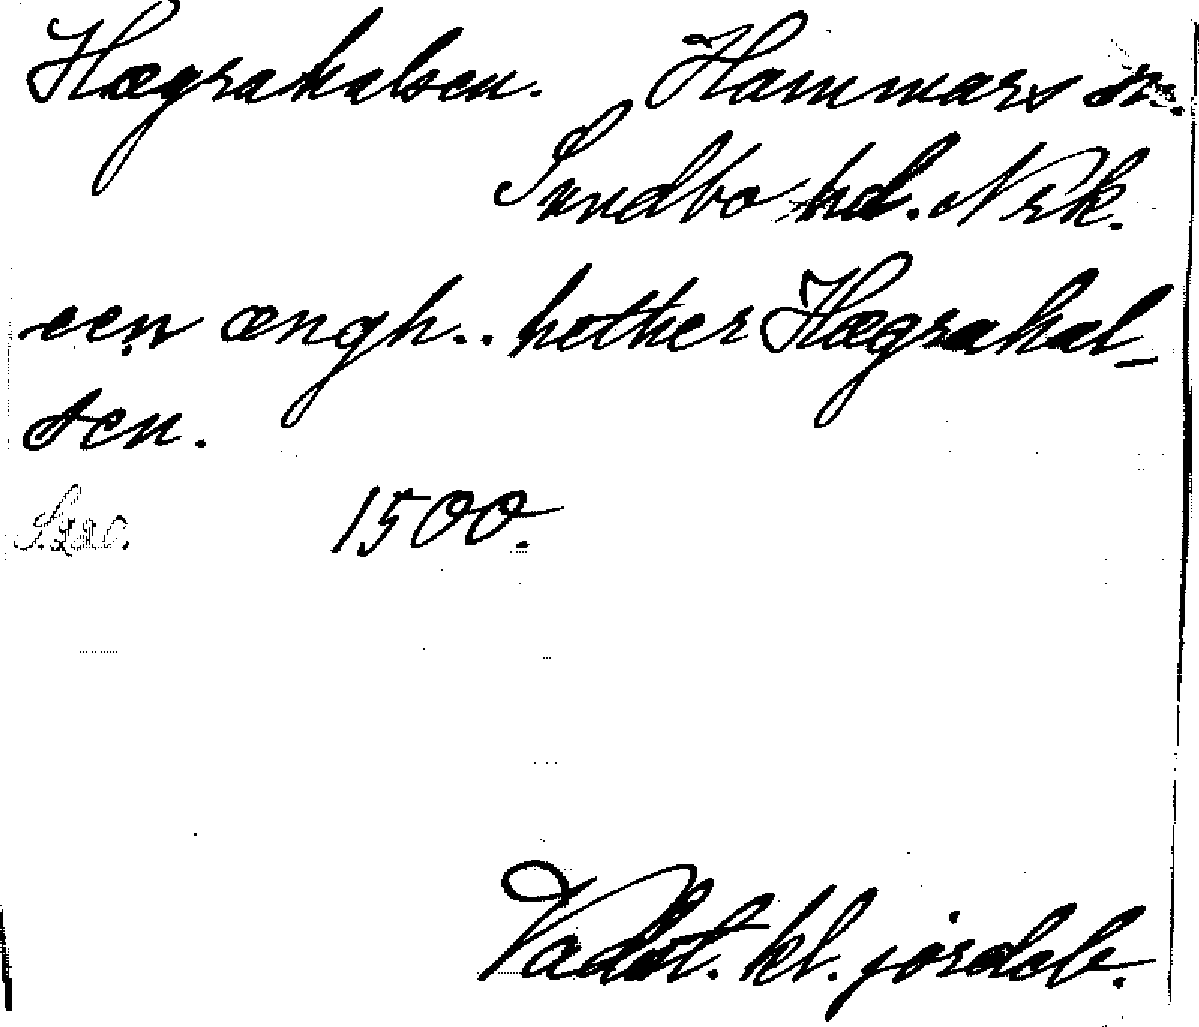 Hægrahalsen. Hammars sn.
Sundbo hd. Nrk.
een ængh.. hether Hægrahal-
sen.
1500.
Vadst. kl. jordeb.